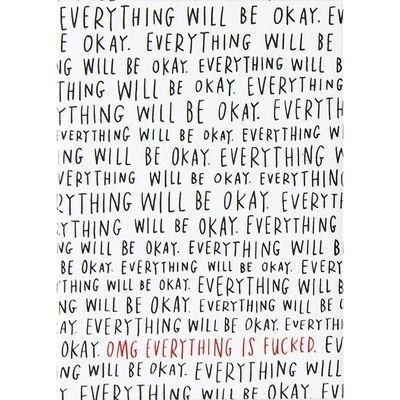 EVERYTHING WILL BE OKAY.
BE OKAY. EVERYTHING WILL BE
NG WILL BE OKAY. EVERYTHING WILL
THING WILL BE OKAY. EVERYTHING
YTHING WILL BE OKAY. EVERYT
EVERYTHING WILL BE OKAY. EVERYTHING
NG WILL BE OKAY. EVERYTHING W
VERYTHING WILL BE OKAY. EVERYTHING
RYTHING WILL BE OKAY. EVERYTHING
YTHING WILL BE OKAY. EVERYTHING
NG WILL BE OKAY. EVERYTHING WILL
BE OKAY. EVERYTHING WILL BE OKAY. EVE
NG WILL BE OKAY. EVERYTHING WILL B
AY. EVERYTHING WILL BE OKAY. EVERYTHI
OKAY. OMG EVERYTHING IS FUCKED. E
L BE OKAY. EVERYTHING WILL
OKAY. EVERYTHING WILL BE